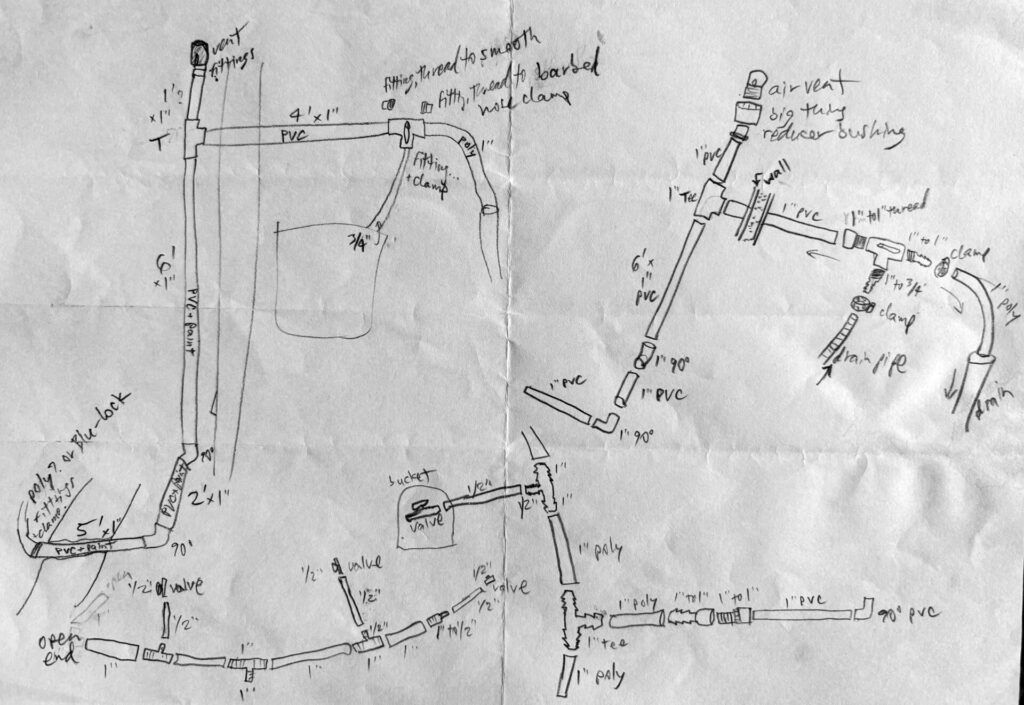 vent
fittings
1'?
x1"
T
4' x 1"
PVC
fitting, thread to smooth
fitting, thread to barbed
hose clamp
poly
1"
fitting...
+ clamp
3/4"
6'
x1"
PVC + paint
90°
PVC + paint
2' x 1"
poly? or Blue-lock
fittings
clamp
5' x 1"
PVC + paint
90°
air vent
big thing
reducer bushing
1" PVC
1" Tee
wall
1" PVC
1" to 1" thread
1" to 1"
clamp
1" poly
1" to 3/4"
clamp
drain pipe
drain
6' x
1"
PVC
1" 90°
1" PVC
1" PVC
1" 90°
bucket
valve
1/2"
1/2"
1"
1"
1" poly
1" tee
1" poly
1" to 1"
1" to 1"
1" PVC
90° PVC
1" poly
open
end
1/2"
valve
1/2"
1"
1"
1"
1/2"
valve
1/2"
1/2"
1"
1"
1" to 1/2"
1/2"
valve
1/2"